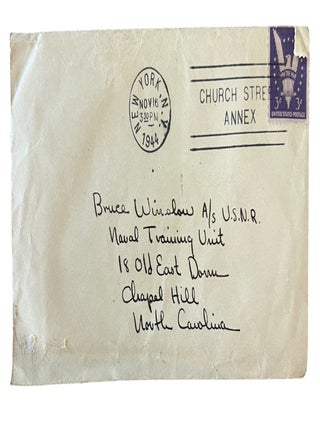 NEW YORK, N.Y.
NOV 16
3-30 PM
1944
CHURCH STREE
ANNEX
3¢ 3¢
UNITED STATES POSTAGE
Bruce Winslow A/S U.S.N.R.
Naval Training Unit
18 Old East Dorm
Chapel Hill
North Carolina